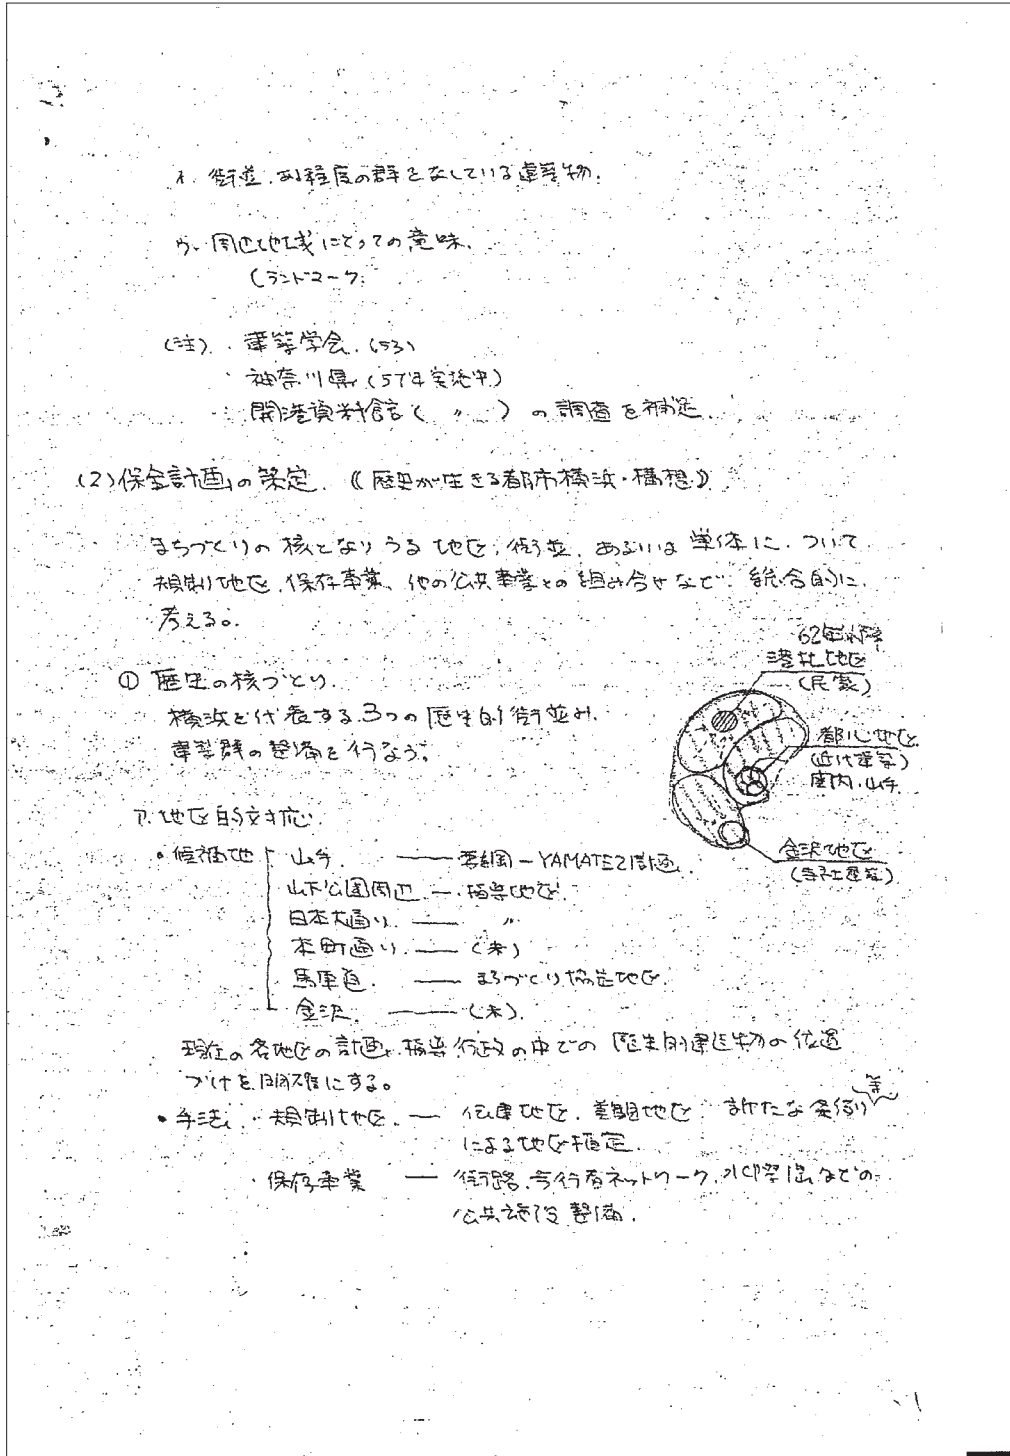 イ. 街並、ある程度の群をなしている建築物.
ウ. 周辺地域にとっての意味.
(ランドマーク.
(注). ・建築学会. (53)
・神奈川県 (57年実施中)
・開港資料館 ( 〃 ) の調査を補足.
(2) 保全計画の策定. 《歴史が生きる都市横浜・構想》
まちづくりの核となりうる地区, 街並, あるいは単体について
規制地区, 保存事業、他の公共事業との組み合せなどで 総合的に
考える。
62年以降
港北地区
(民家)
① 歴史の核づくり.
横浜を代表する3つの歴史的街並み.
建築群の整備を行なう.
都心地区
(近代建築)
関内・山手
金沢地区
(寺社建築)
ア. 地区的対応.
・候補地 山手. ── 要綱-YAMATE計画.
山下公園周辺 ─ 指導地区.
日本大通り. ── 〃
本町通り. ── (未)
馬車道. ── まちづくり協定地区.
金沢. ── (未).
現在の各地区の計画, 指導行政の中での 歴史的建造物の位置
づけを明確にする。
・手法. ・規制地区. ─ 伝建地区, 美観地区 新たな条例 等
による地区指定.
・保存事業 ─ 街路, 歩行者ネットワーク, などの
公共施設整備.